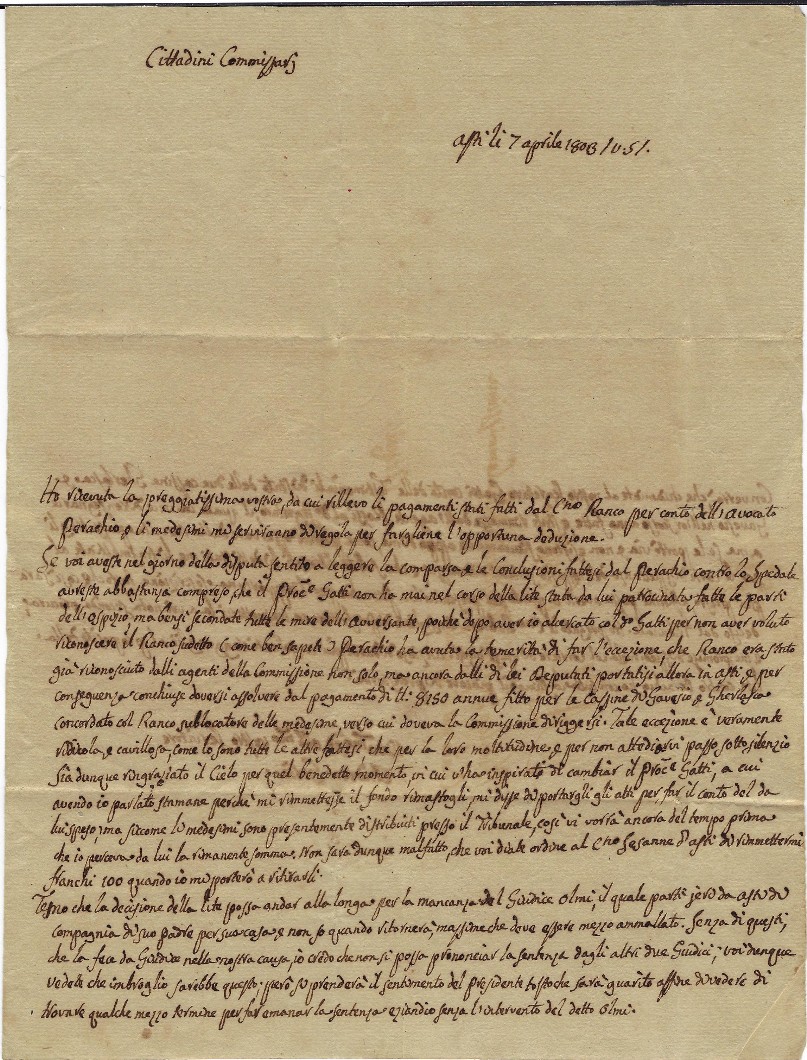 Cittadini Commissarj
asti li 7 aprile 1803 /v. s/.
Ho ricevuta la preggiatissima vostra, da cui rillevo li pagamenti stati fatti dal C.no Ranco per conto dell'avocato
Perachio, e li medesimi mi serviranno di regola per fargliene l'opportuna deduzione.
Se voi aveste nel giorno della disputa sentito a leggere la comparsa, e le Conclusioni fattesi dal Perachio contro lo Spedale
avreste abbastanza compreso, che il Proc.e Gatti non ha mai nel corso della lite stata da lui patrocinata fatte le parti
dell'ospizio, ma bensì secondate tutte le mire dell'avversante, poichè dopo aver io altercato col do Gatti per non aver voluto
riconoscere il Ranco sudetto (come ben sapete) Perachio ha avuta la temerità di far l'eccezione, che Ranco era stato
già riconosciuto dalli agenti della Commissione non solo, ma ancora dalli di lei Deputati portatisi allora in asti, e per
conseguenza conchiuse doversi assolvere dal pagamento di ll. 8150 annue fitto per le Cassine di Gavesio, e Gherlasca
concordato col Ranco sublocatore delle medesime, verso cui doveva la Commissione diriggersi. Tale eccezione è veramente
ridicola, e cavillosa, come lo sono tutte le altre fattesi, che per la loro moltitudine, e per non attediarvi passo sotto silenzio
Sia dunque ringraziato il Cielo per quel benedetto momento, in cui v'ha inspirato di cambiar il Proc.e Gatti, a cui
avendo io parlato stamane perchè mi rimmettesse il fondo rimastogli, mi disse di portargli gli atti per far il conto del da
lui speso, ma siccome li medesimi sono presentemente distribuiti presso il Tribunale, così vi vorrà ancora del tempo prima
che io perceva da lui la rimanente somma. Non sarà dunque malfatto, che voi diate ordine al C.no Sesanne d'asti di rimmettermi
franchi 100 quando io mi porterò a ritirarli.
Temo che la decisione della lite possa andar alla longa per la mancanza del Giudice Olmi, il quale partì jeri da asti di
compagnia di suo padre per sua casa, e non so quando ritornerà, massime che deve essere mezzo ammallato. Senza di questi,
che la fece da Giudice nella nostra causa, io credo che non si possa prononciar la sentenza dagli altri due Giudici; voi dunque
vedete che imbroglio sarebbe questo: però si prenderà il sentimento del Presidente tostoche sarà guarito affine di vedere di
trovare qualche mezzo termine per far emanar la sentenza eziandio senza l'intervento del detto Olmi.